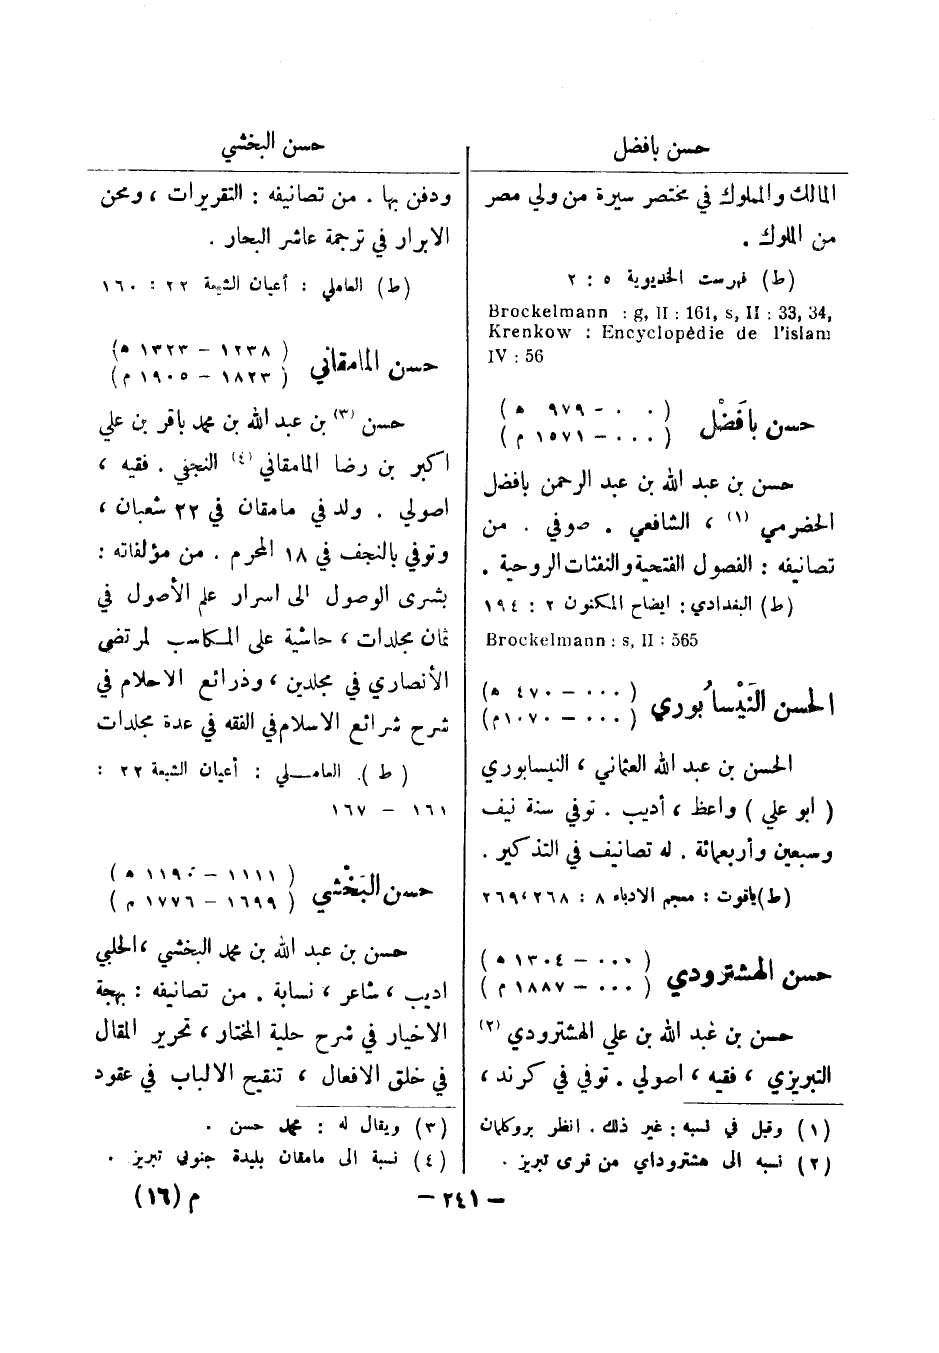 حسن بافضل
المالك والمملوك في مختصر سيرة من ولي مصر
من الملوك .
(ط) فهرست الخديوية ٥ : ٢
Brockelmann : g, II : 161, s, II : 33, 34,
Krenkow : Encyclopédie de l'islam
IV : 56
حسن بافَضْل ( ٠٠٠ - ٩٧٩ ه )
( ٠٠٠ - ١٥٧١ م )
حسن بن عبد الله بن عبد الرحمن بافضل
الحضرمي (١) ، الشافعي . صوفي . من
تصانيفه : الفصول الفتحية والنفثات الروحية .
(ط) البغدادي : ايضاح المكنون ٢ : ١٩٤
Brockelmann : s, II : 565
الحسن النَيْسابُوري ( ٠٠٠ - ٤٧٠ ه )
( ٠٠٠ - ١٠٧٠ م )
الحسن بن عبد الله العثماني ، النيسابوري
( ابو علي ) واعظ ، أديب . توفي سنة نيف
وسبعين وأربعمائة . له تصانيف في التذكير .
(ط) ياقوت : معجم الادباء ٨ : ٢٦٨ ، ٢٦٩
حسن الهشترودي ( ٠٠٠ - ١٣٠٤ ه )
( ٠٠٠ - ١٨٨٧ م )
حسن بن عبد الله بن علي الهشترودي (٢)
التبريزي ، فقيه ، اصولي . توفي في كرند ،
(١) وقيل في نسبه : غير ذلك . انظر بروكلمان
(٢) نسبه الى هشتروداي من قرى تبريز .
حسن البخشي
ودفن بها . من تصانيفه : التقريرات ، ومحن
الابرار في ترجمة عاشر البحار .
(ط) العاملي : أعيان الشيعة ٢٢ : ١٦٠
حسن المامقاني ( ١٢٣٨ - ١٣٢٣ ه )
( ١٨٢٣ - ١٩٠٥ م )
حسن (٣) بن عبد الله بن محمد باقر بن علي
اكبر بن رضا المامقاني (٤) النجفي . فقيه ،
اصولي . ولد في مامقان في ٢٢ شعبان ،
وتوفي بالنجف في ١٨ المحرم . من مؤلفاته :
بشرى الوصول الى اسرار علم الأصول في
ثمان مجلدات ، حاشية على المكاسب لمرتضى
الأنصاري في مجلدين ، وذرائع الاحلام في
شرح شرائع الاسلام في الفقه في عدة مجلدات
( ط ) . العاملي : أعيان الشيعة ٢٢ :
١٦١ - ١٦٧
حسن البَخْشي ( ١١١١ - ١١٩٠ ه )
( ١٦٩٩ - ١٧٧٦ م )
حسن بن عبد الله بن محمد البخشي ، الحلبي
اديب ، شاعر ، نسابة . من تصانيفه : بهجة
الاخيار في شرح حلية المختار ، تحرير المقال
في خلق الافعال ، تنقيح الالباب في عقود
(٣) ويقال له : محمد حسن .
(٤) نسبة الى مامقان بليدة جنوبي تبريز .
- ٢٤١ -
م (١٦)